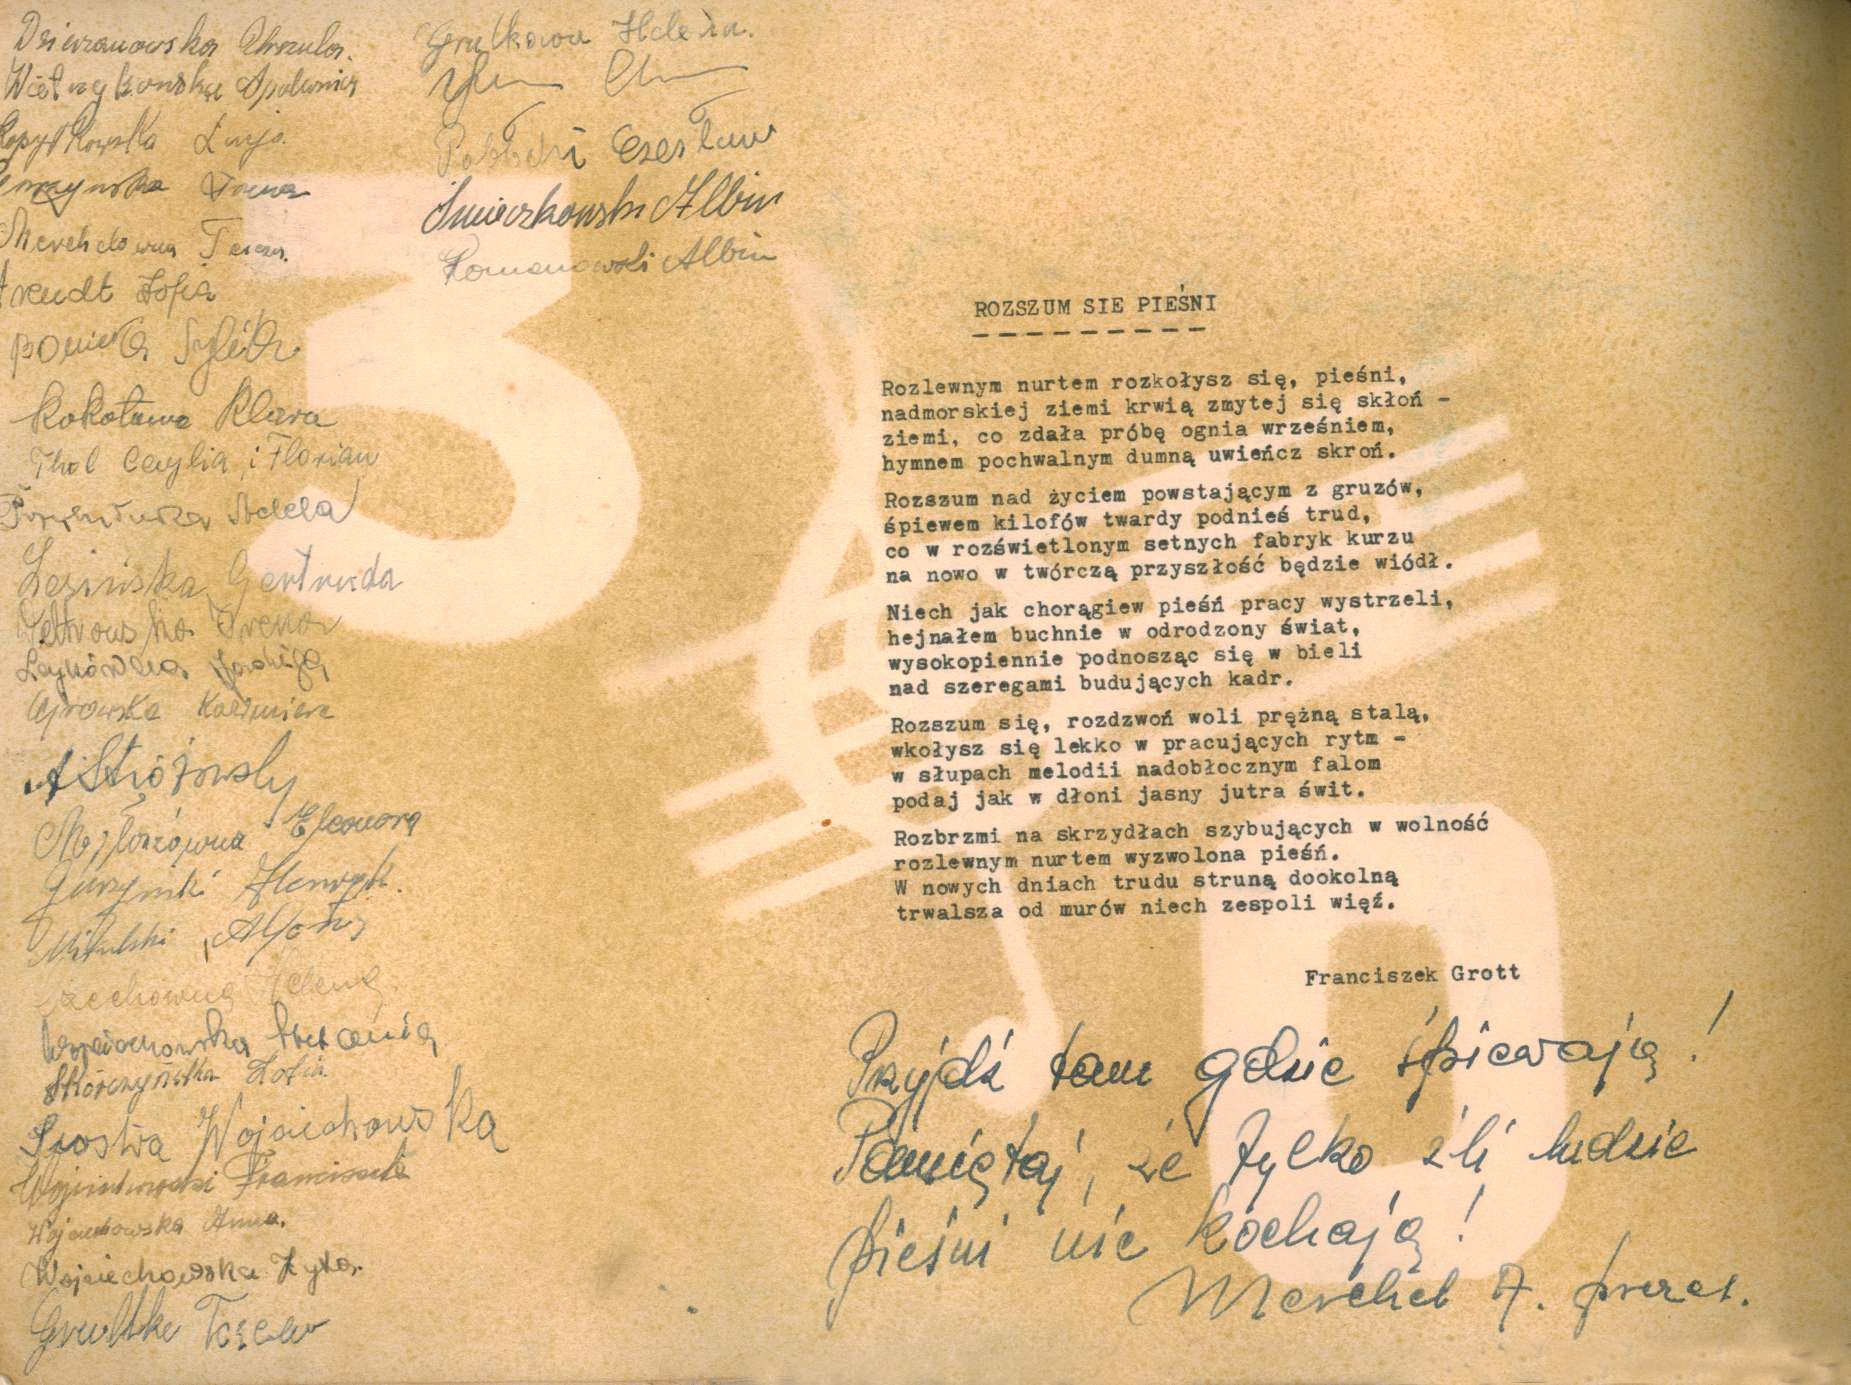 Dzierzanowska Urszula.
Apolonia
Łucja
Irena
Merchelówna Teresa.
Arendt Zofia
Kokotowa Klara
Thol Cecylia i Florian
Adela
Lezińska Gertruda
Irena
Jadwiga
Kazimiera
A Stróżewsky
Eleonora
Henryk.
Mikulski Alfons
Helena
Wojciechowska Stefania
Skórczyńska Zofia
Siostra Wojciechowska
Wojciechowski Franciszek
Wojciechowska Anna.
Wojciechowska Zyta.
Grulke
Helena.
Czesław
Śmieczkowski Albin
Romanowski Albin
3
0
ROZSZUM SIE PIEŚNI
Rozlewnym nurtem rozkołysz się, pieśni,
nadmorskiej ziemi krwią zmytej się skłoń -
ziemi, co zdała próbę ognia wrześniem,
hymnem pochwalnym dumną uwieńcz skroń.
Rozszum nad życiem powstającym z gruzów,
śpiewem kilofów twardy podnieś trud,
co w rozświetlonym setnych fabryk kurzu
na nowo w twórczą przyszłość będzie wiódł.
Niech jak chorągiew pieśń pracy wystrzeli,
hejnałem buchnie w odrodzony świat,
wysokopiennie podnosząc się w bieli
nad szeregami budujących kadr.
Rozszum się, rozdzwoń woli prężną stalą,
wkołysz się lekko w pracujących rytm -
w słupach melodii nadobłocznym falom
podaj jak w dłoni jasny jutra świt.
Rozbrzmi na skrzydłach szybujących w wolność
rozlewnym nurtem wyzwolona pieśń.
W nowych dniach trudu struną dookolną
trwalsza od murów niech zespoli więź.
Franciszek Grott
Przyjdź tam gdzie śpiewają!
Pamiętaj, że tylko źli ludzie
pieśni nie kochają!
Merchel A. prezes.